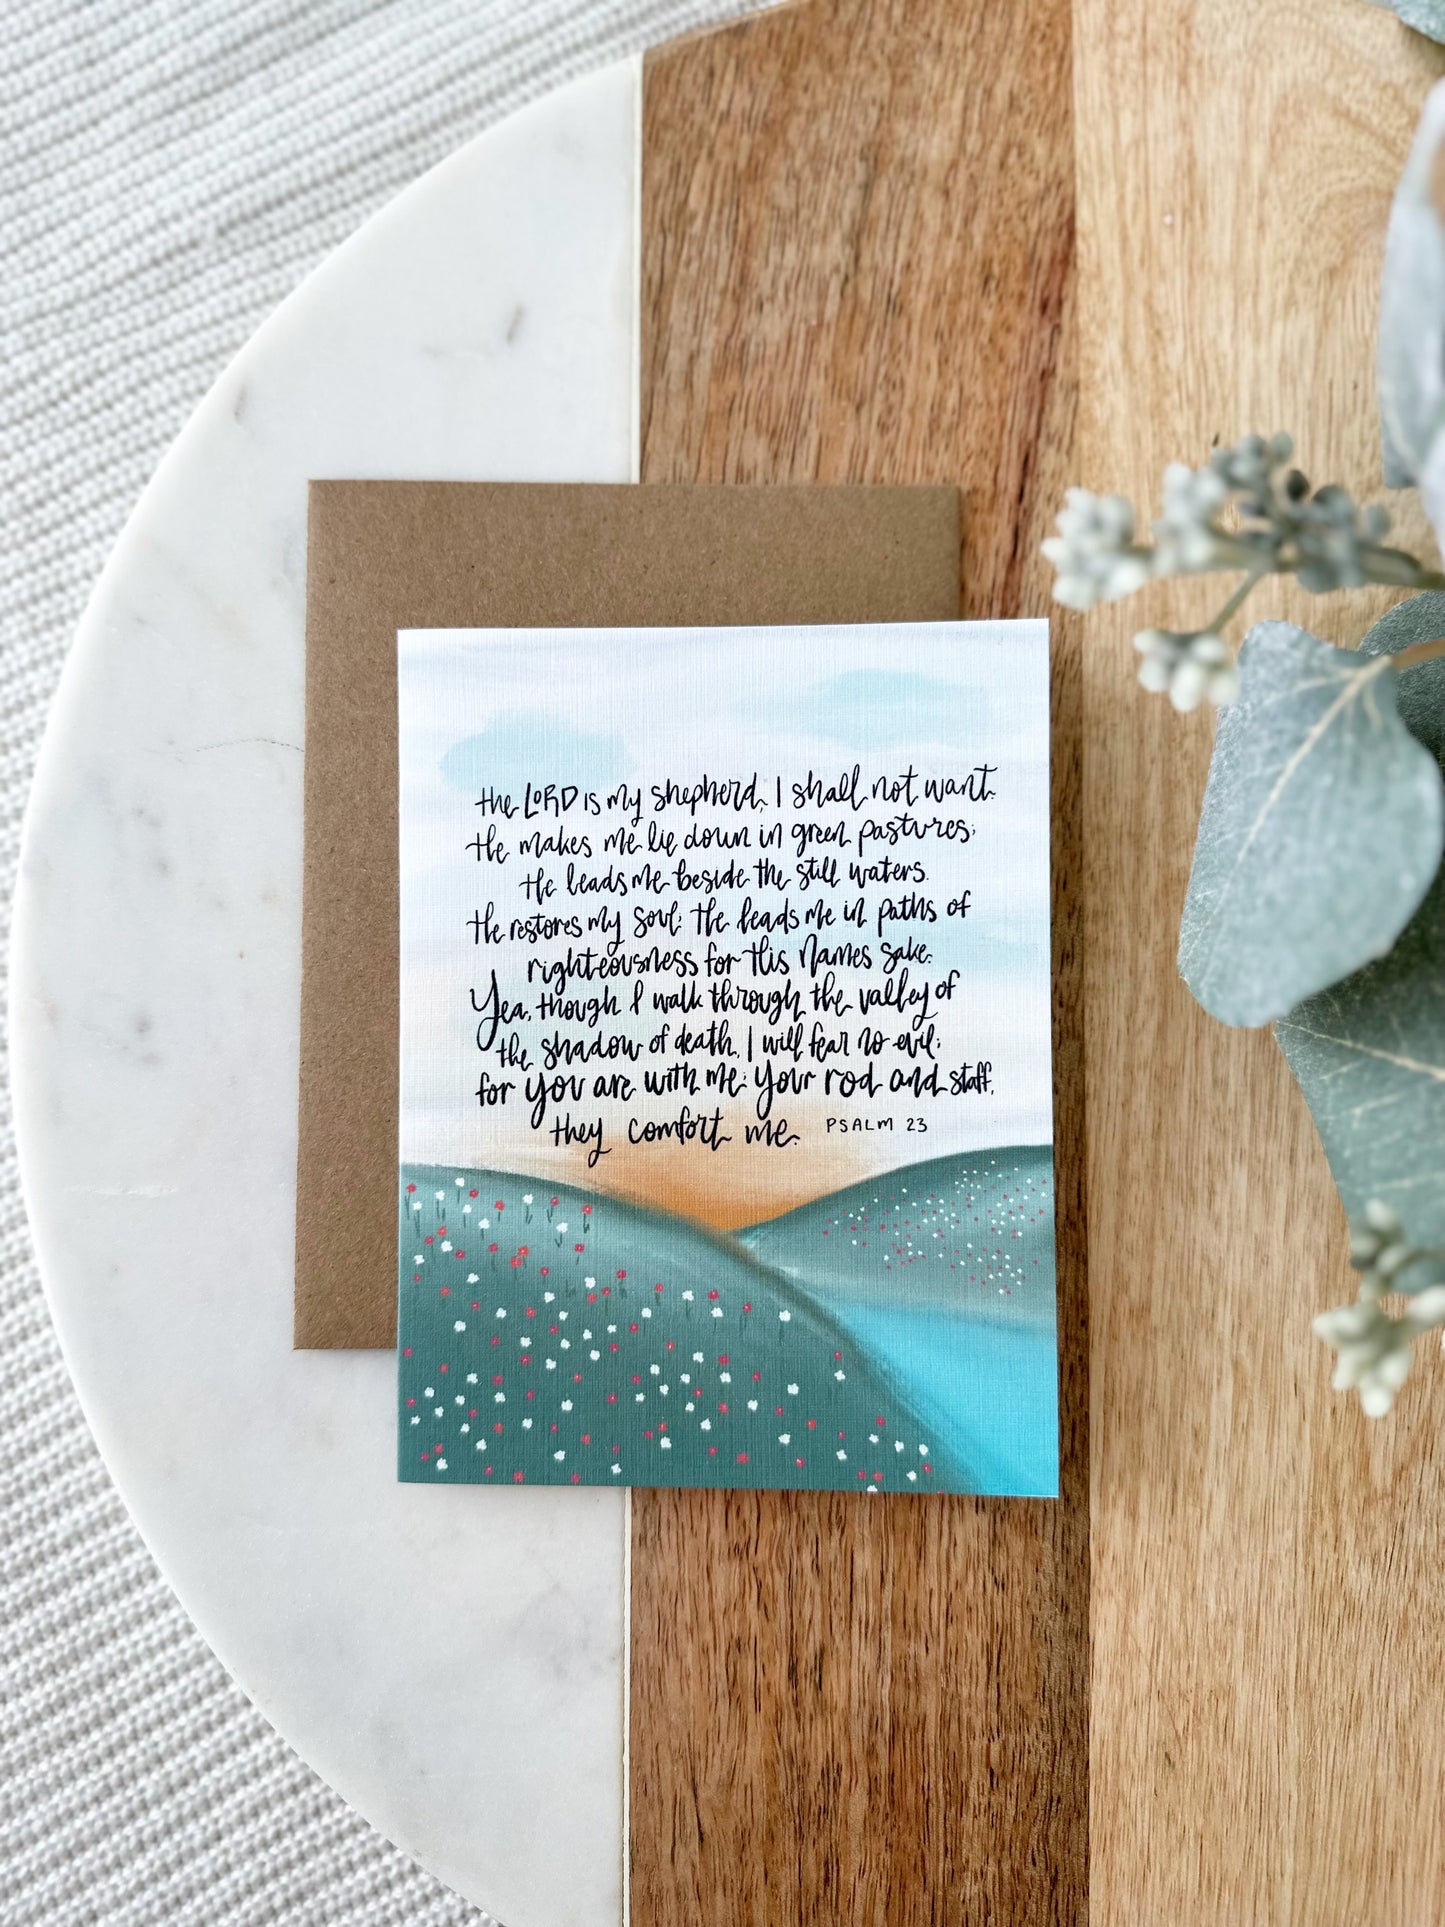 the LORD is my shepherd, I shall not want.
He makes me lie down in green pastures;
He leads me beside the still waters.
He restores my soul; He leads me in paths of
righteousness for His Names sake.
Yea, though I walk through the valley of
the shadow of death, I will fear no evil;
for you are with me; your rod and staff,
they comfort me. PSALM 23